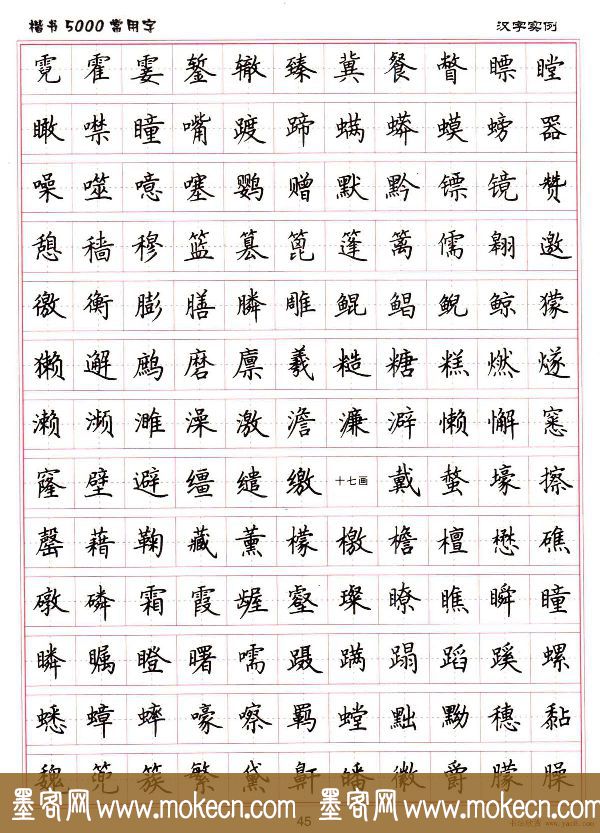 楷书5000常用字 汉字实例
霓 霍 霎 錾 辙 臻 冀 餐 瞥 瞟 瞠
瞰 噤 瞳 嘴 踱 蹄 螨 蟒 蟆 螃 器
噪 噬 噫 噻 鹦 赠 默 黔 镖 镜 赞
憩 穑 穆 篮 篡 篦 篷 篱 儒 翱 邀
徼 衡 膨 膳 膦 雕 鲲 鲳 鲵 鲸 獴
獭 邂 鹧 磨 廪 羲 糙 糖 糕 燃 燧
濑 濒 濉 澡 激 澹 濂 澼 懒 懈 窸
窿 壁 避 缰 缱 缴 十七画 戴 螯 壕 擦
罄 藉 鞠 藏 薰 檬 檄 檐 檀 懋 礁
礅 磷 霜 霞 龌 壑 璨 瞭 瞧 瞬 瞳
瞵 瞩 瞪 曙 嚅 蹑 蹒 蹋 蹈 蹊 螺
蟋 蟑 蟀 嚎 嚓 羁 螳 黜 黝 穗 黏
魏 篼 簇 繁 黛 鼾 皤 徽 爵 朦 臊
45
墨客网 www.mokecn.com 墨客网 www.mokecn.com